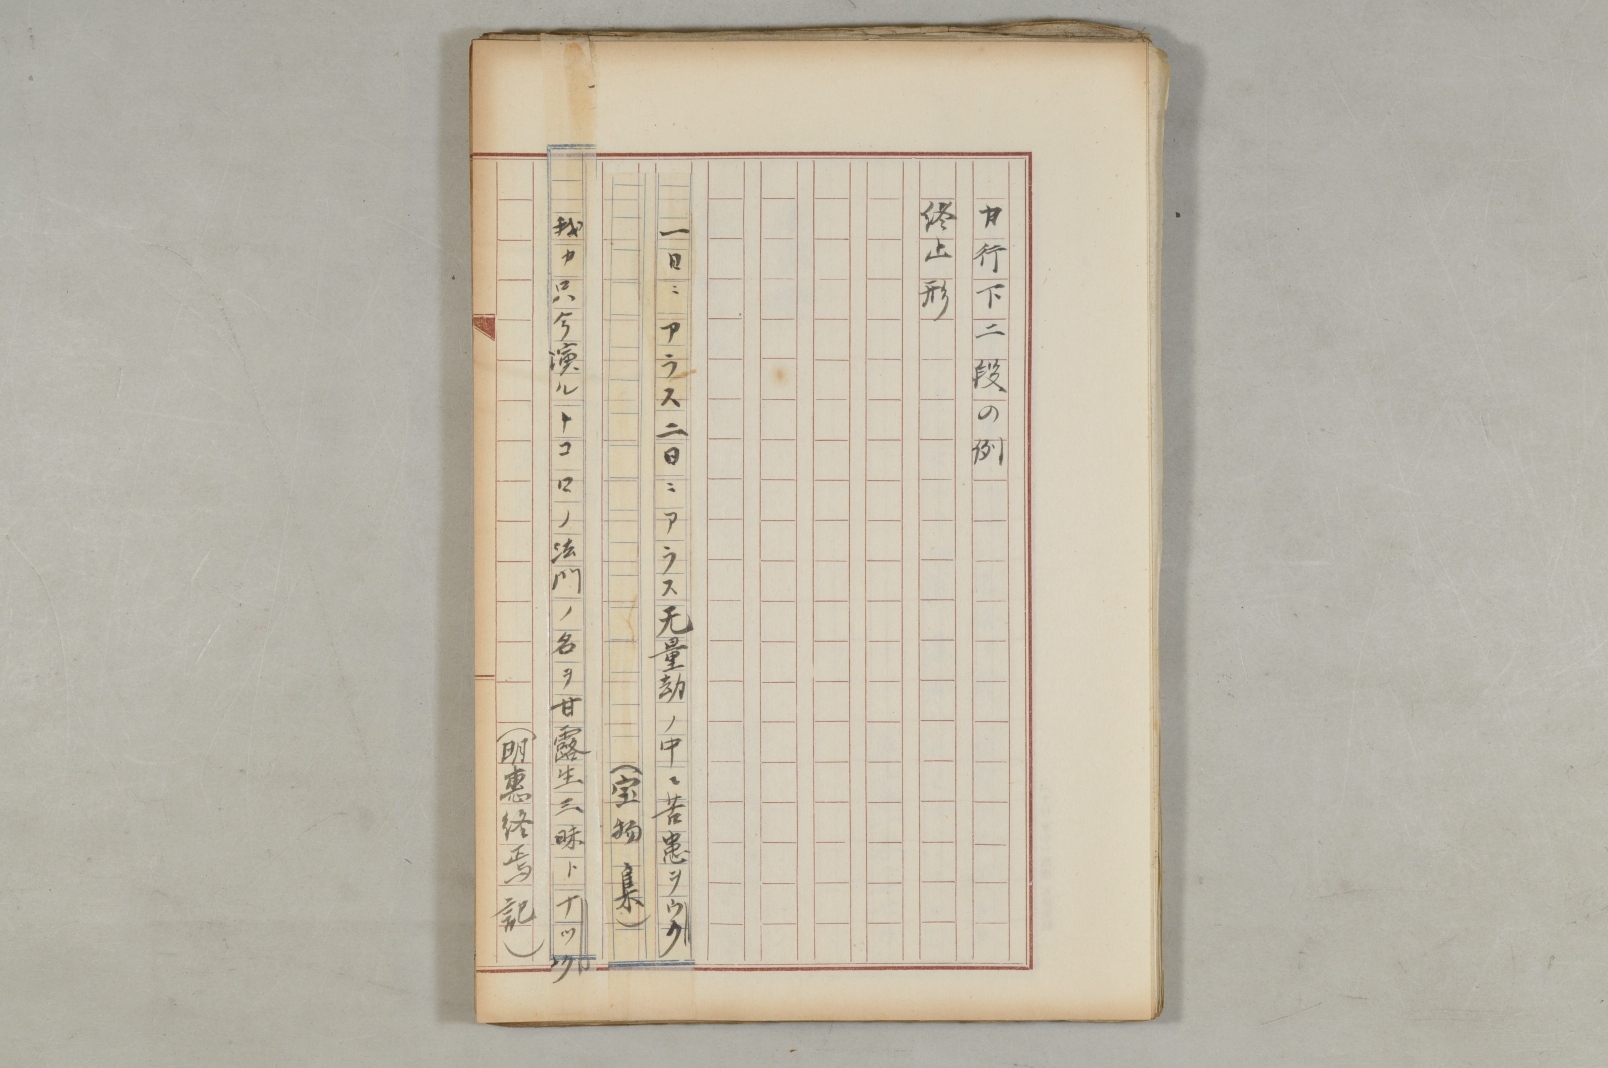 カ行下二段の例
終止形
一日ニアラス二日ニアラス无量劫ノ中ニ苦患ヲウク
(宝物集)
我カ只今演ルトコロノ法門ノ名ヲ甘露生三昧トナツク
(明恵終焉記)